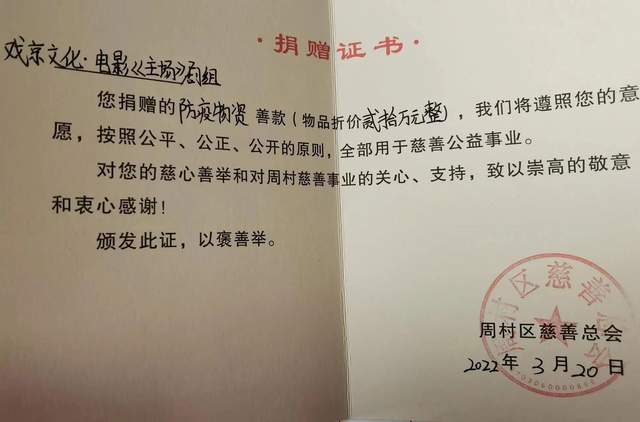 ·捐赠证书·
戏京文化·电影《主场》剧组
您捐赠的防疫物资善款（物品折价贰拾万元整），我们将遵照您的意
愿，按照公平、公正、公开的原则，全部用于慈善公益事业。
对您的慈心善举和对周村慈善事业的关心、支持，致以崇高的敬意
和衷心感谢！
颁发此证，以褒善举。
周村区慈善总会
2022年3月20日